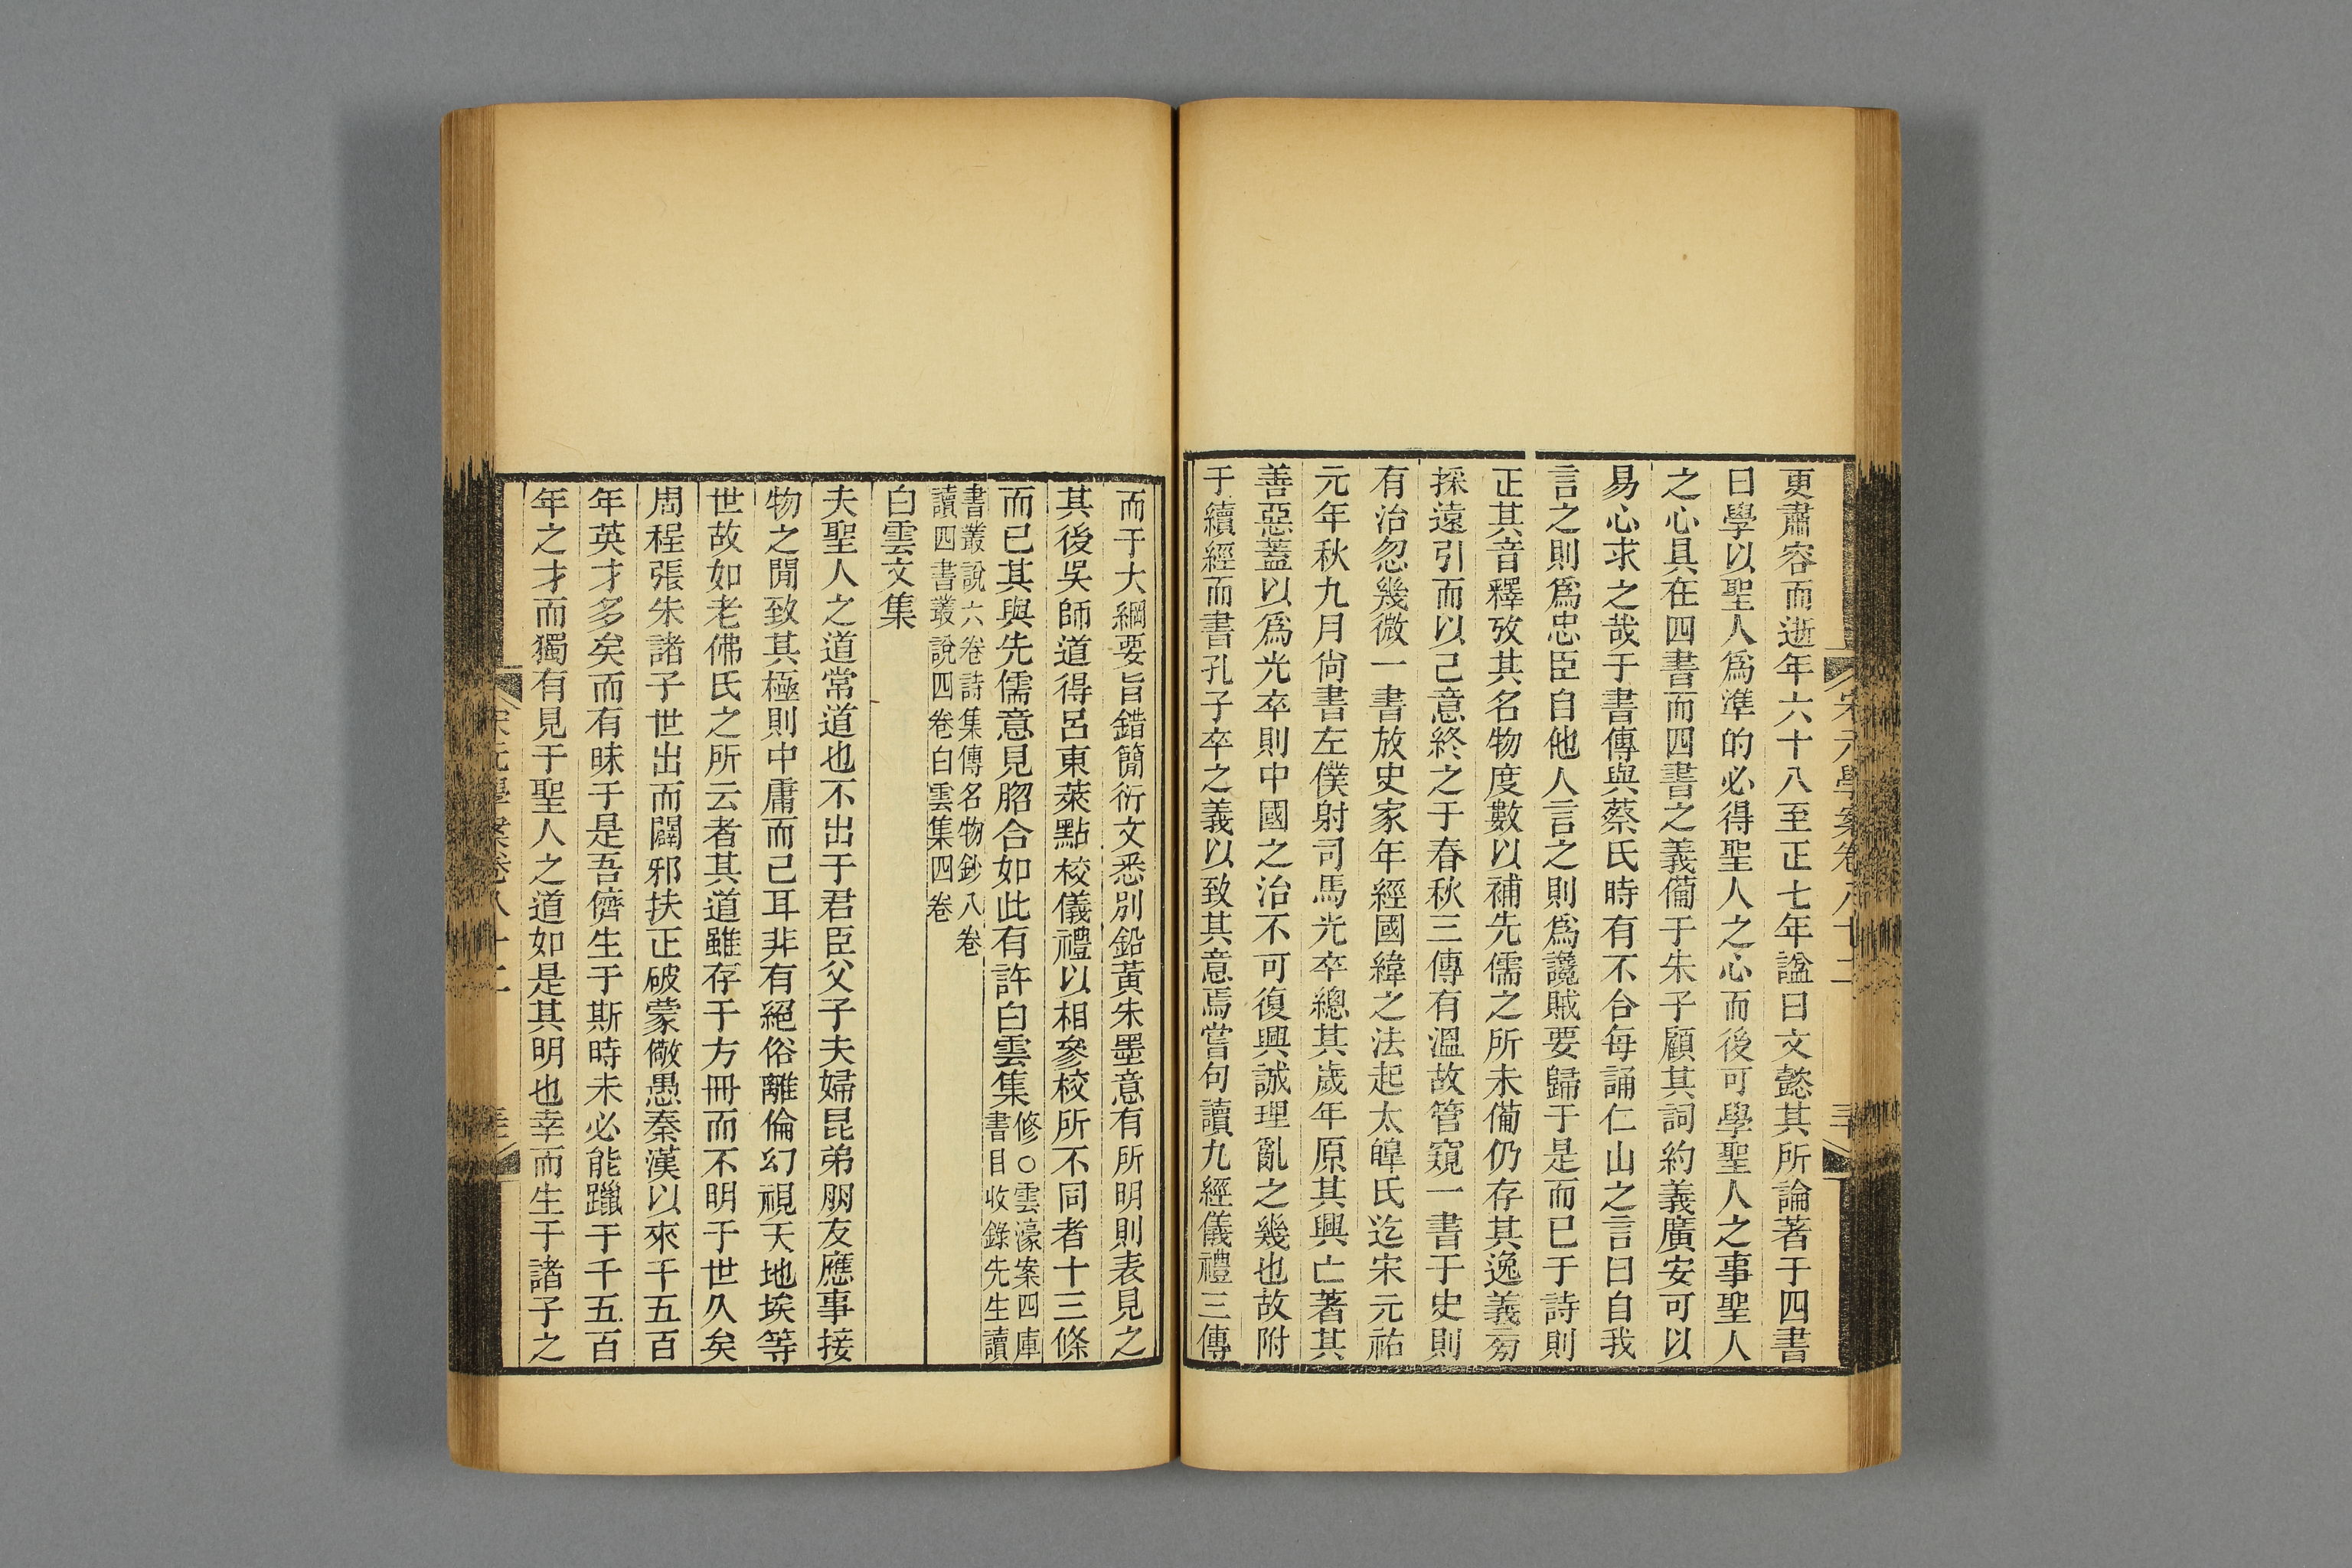 更肅容而逝年六十八至正七年諡曰文懿其所論著于四書
曰學以聖人爲準的必得聖人之心而後可學聖人之事聖人
之心具在四書而四書之義僃于朱子顧其詞約義廣安可以
易心求之哉于書傳與蔡氏時有不合每誦仁山之言曰自我
言之則爲忠臣自他人言之則爲讒賊要歸于是而已于詩則
正其音釋攷其名物度數以補先儒之所未僃仍存其逸義㫄
採遠引而以己意終之于春秋三傳有溫故管窺一書于史則
有治忽幾微一書放史家年經國緯之法起太皥氏迄宋元祐
元年秋九月尙書左僕射司馬光卒總其歲年原其興亡著其
善惡蓋以爲光卒則中國之治不可復興誠理亂之幾也故附
于續經而書孔子卒之義以致其意焉嘗句讀九經儀禮三傳
而于大綱要旨錯簡衍文悉別鉛黃朱墨意有所明則表見之
其後吳師道得呂東萊點校儀禮以相參校所不同者十三條
而已其與先儒意見脗合如此有許白雲集修○雲濠案四庫書目收錄先生讀
書叢說六卷詩集傳名物鈔八卷
讀四書叢說四卷白雲集四卷
白雲文集
夫聖人之道常道也不出于君臣父子夫婦昆弟朋友應事接
物之閒致其極則中庸而已耳非有絕俗離倫幻視天地埃等
世故如老佛氏之所云者其道雖存于方冊而不明于世久矣
周程張朱諸子世出而闢邪扶正破蒙儆愚秦漢以來千五百
年英才多矣而有昧于是吾儕生于斯時未必能躐于千五百
年之才而獨有見于聖人之道如是其明也幸而生于諸子之
宋元學案卷八十二